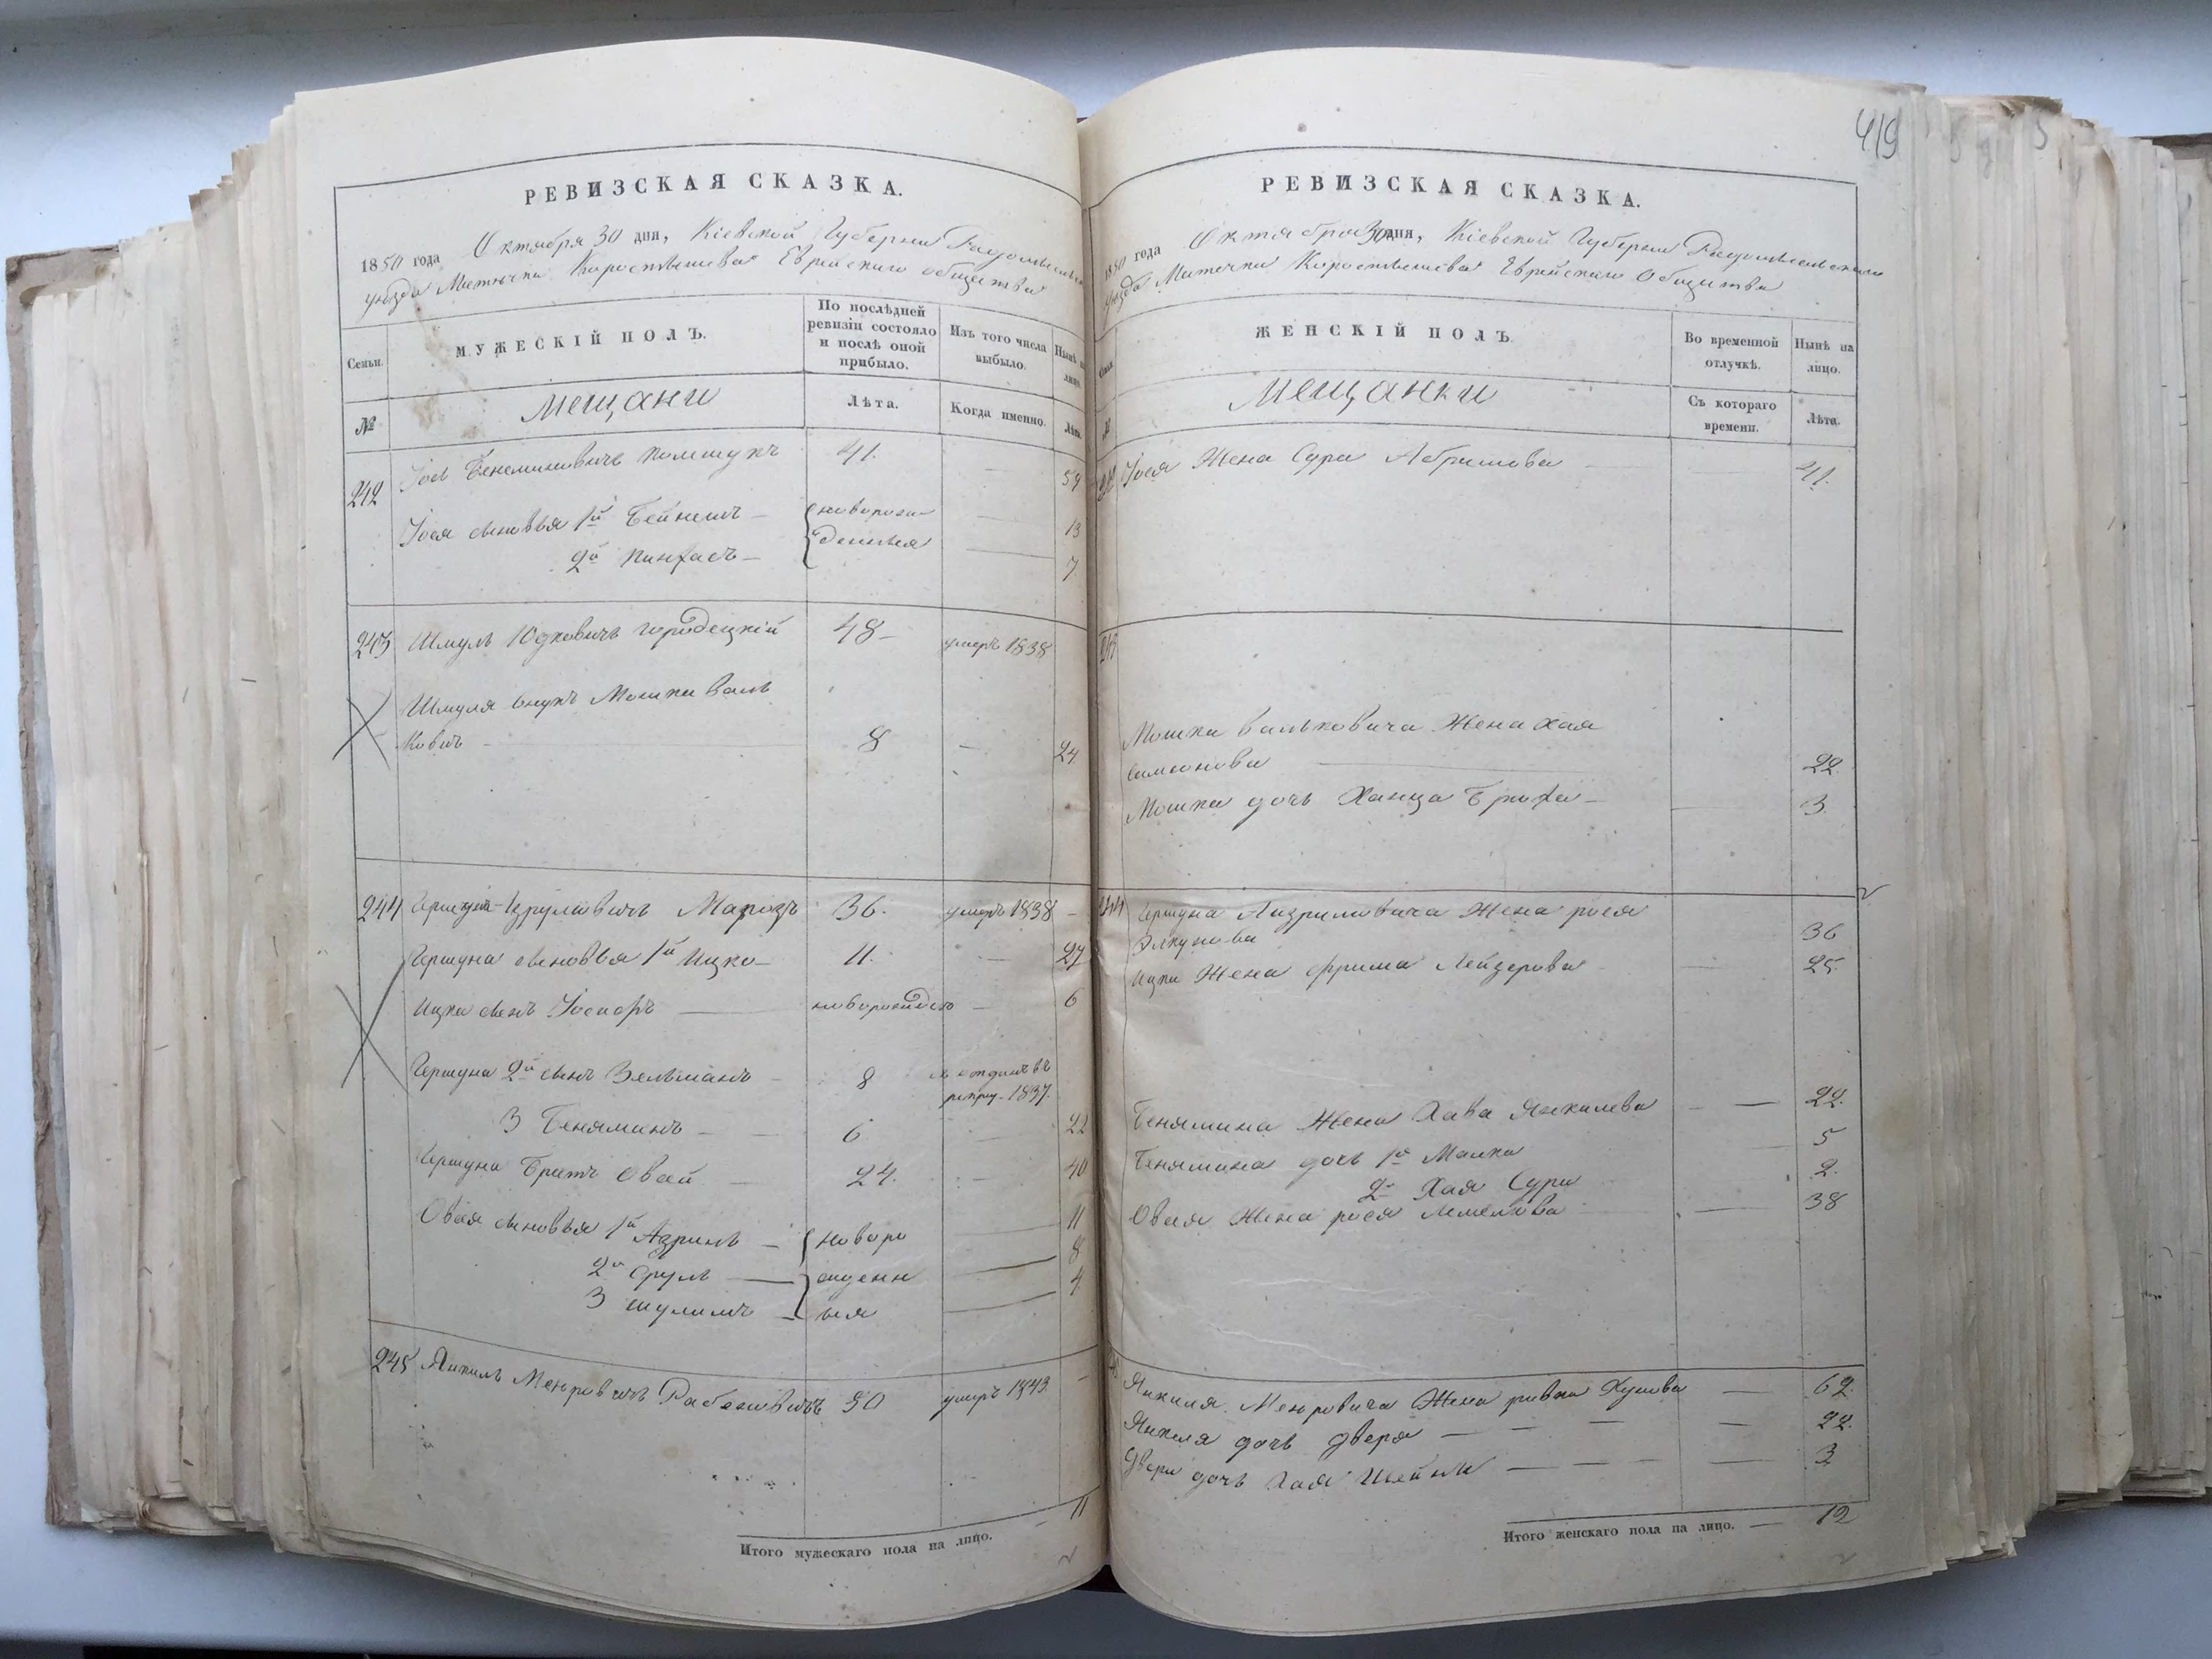 РЕВИЗСКАЯ СКАЗКА.
1850 года Октября 30 дня, Кіевской Губерніи Радомысльскаго
уѣзда Мѣстечка Коростышева Еврейскаго общества
Семьи.
МУЖЕСКІЙ ПОЛЪ.
По послѣдней ревизіи состояло и послѣ оной прибыло.
Изъ того числа выбыло.
Нынѣ на лицо.
№
Мещани
Лѣта.
Когда именно.
Лѣта.
242 Іось Бенеминовичъ 41. — 59
Іося сыновья 1й Бейнишъ — новорож- — 13
2й Пинхасъ — денныя — 7
243 Шмуль Юдковичъ Городецкій 48 — умеръ 1838
Шмуля внукъ Мошка Валь
ковичъ — 8 — 24
244 Изрулевичъ Марозъ 36. умеръ 1838 —
Гершуна сыновья 1й Ицко — 11. — 27
Ицка сынъ Іосифъ — новорожден — 6
Гершуна 2й сынъ Зельманъ — 8 отданъ въ
рекру. 1837.
3 Беняминъ — 6 — 22
Гершуна братъ Овсей 24. — 40
Овсея сыновья 1й Азриль — новоро — 11
2й Сруль — жденн — 8
3 Шулимъ — ыя — 4
245 Янкель Меѣровичъ 50 умеръ 1843. —
Итого мужескаго пола на лицо. — 11
419
РЕВИЗСКАЯ СКАЗКА.
1850 года Октября 30 дня, Кіевской Губерніи Радомысльскаго
уѣзда Мѣстечка Коростышева Еврейскаго Общества
Семьи.
ЖЕНСКІЙ ПОЛЪ
Во временной отлучкѣ.
Нынѣ на лицо.
№
Мещанки
Съ котораго времени.
Лѣта.
242 Іося Жена Сура Абрамова — 41.
243
Мошки Вальковича Жена Хая
Симонова — 22.
Мошка дочь Ханца Брифа — 3.
244 Гершуна Жена Рося
36
Ицки Жена Фрима Лейзерова — 25.
Бенямина Жена Хава Янкилева — 22.
Бенямина дочь 1я Малка 5
2я Хая Сура 2.
Овсея Жена Рося — 38
245 Янкиля Меѣровича Жена Ривка — 62.
Янкиля дочь Двера — — — 22.
Двери дочь Хая Шейна — — — 3
Итого женскаго пола на лицо. — 12